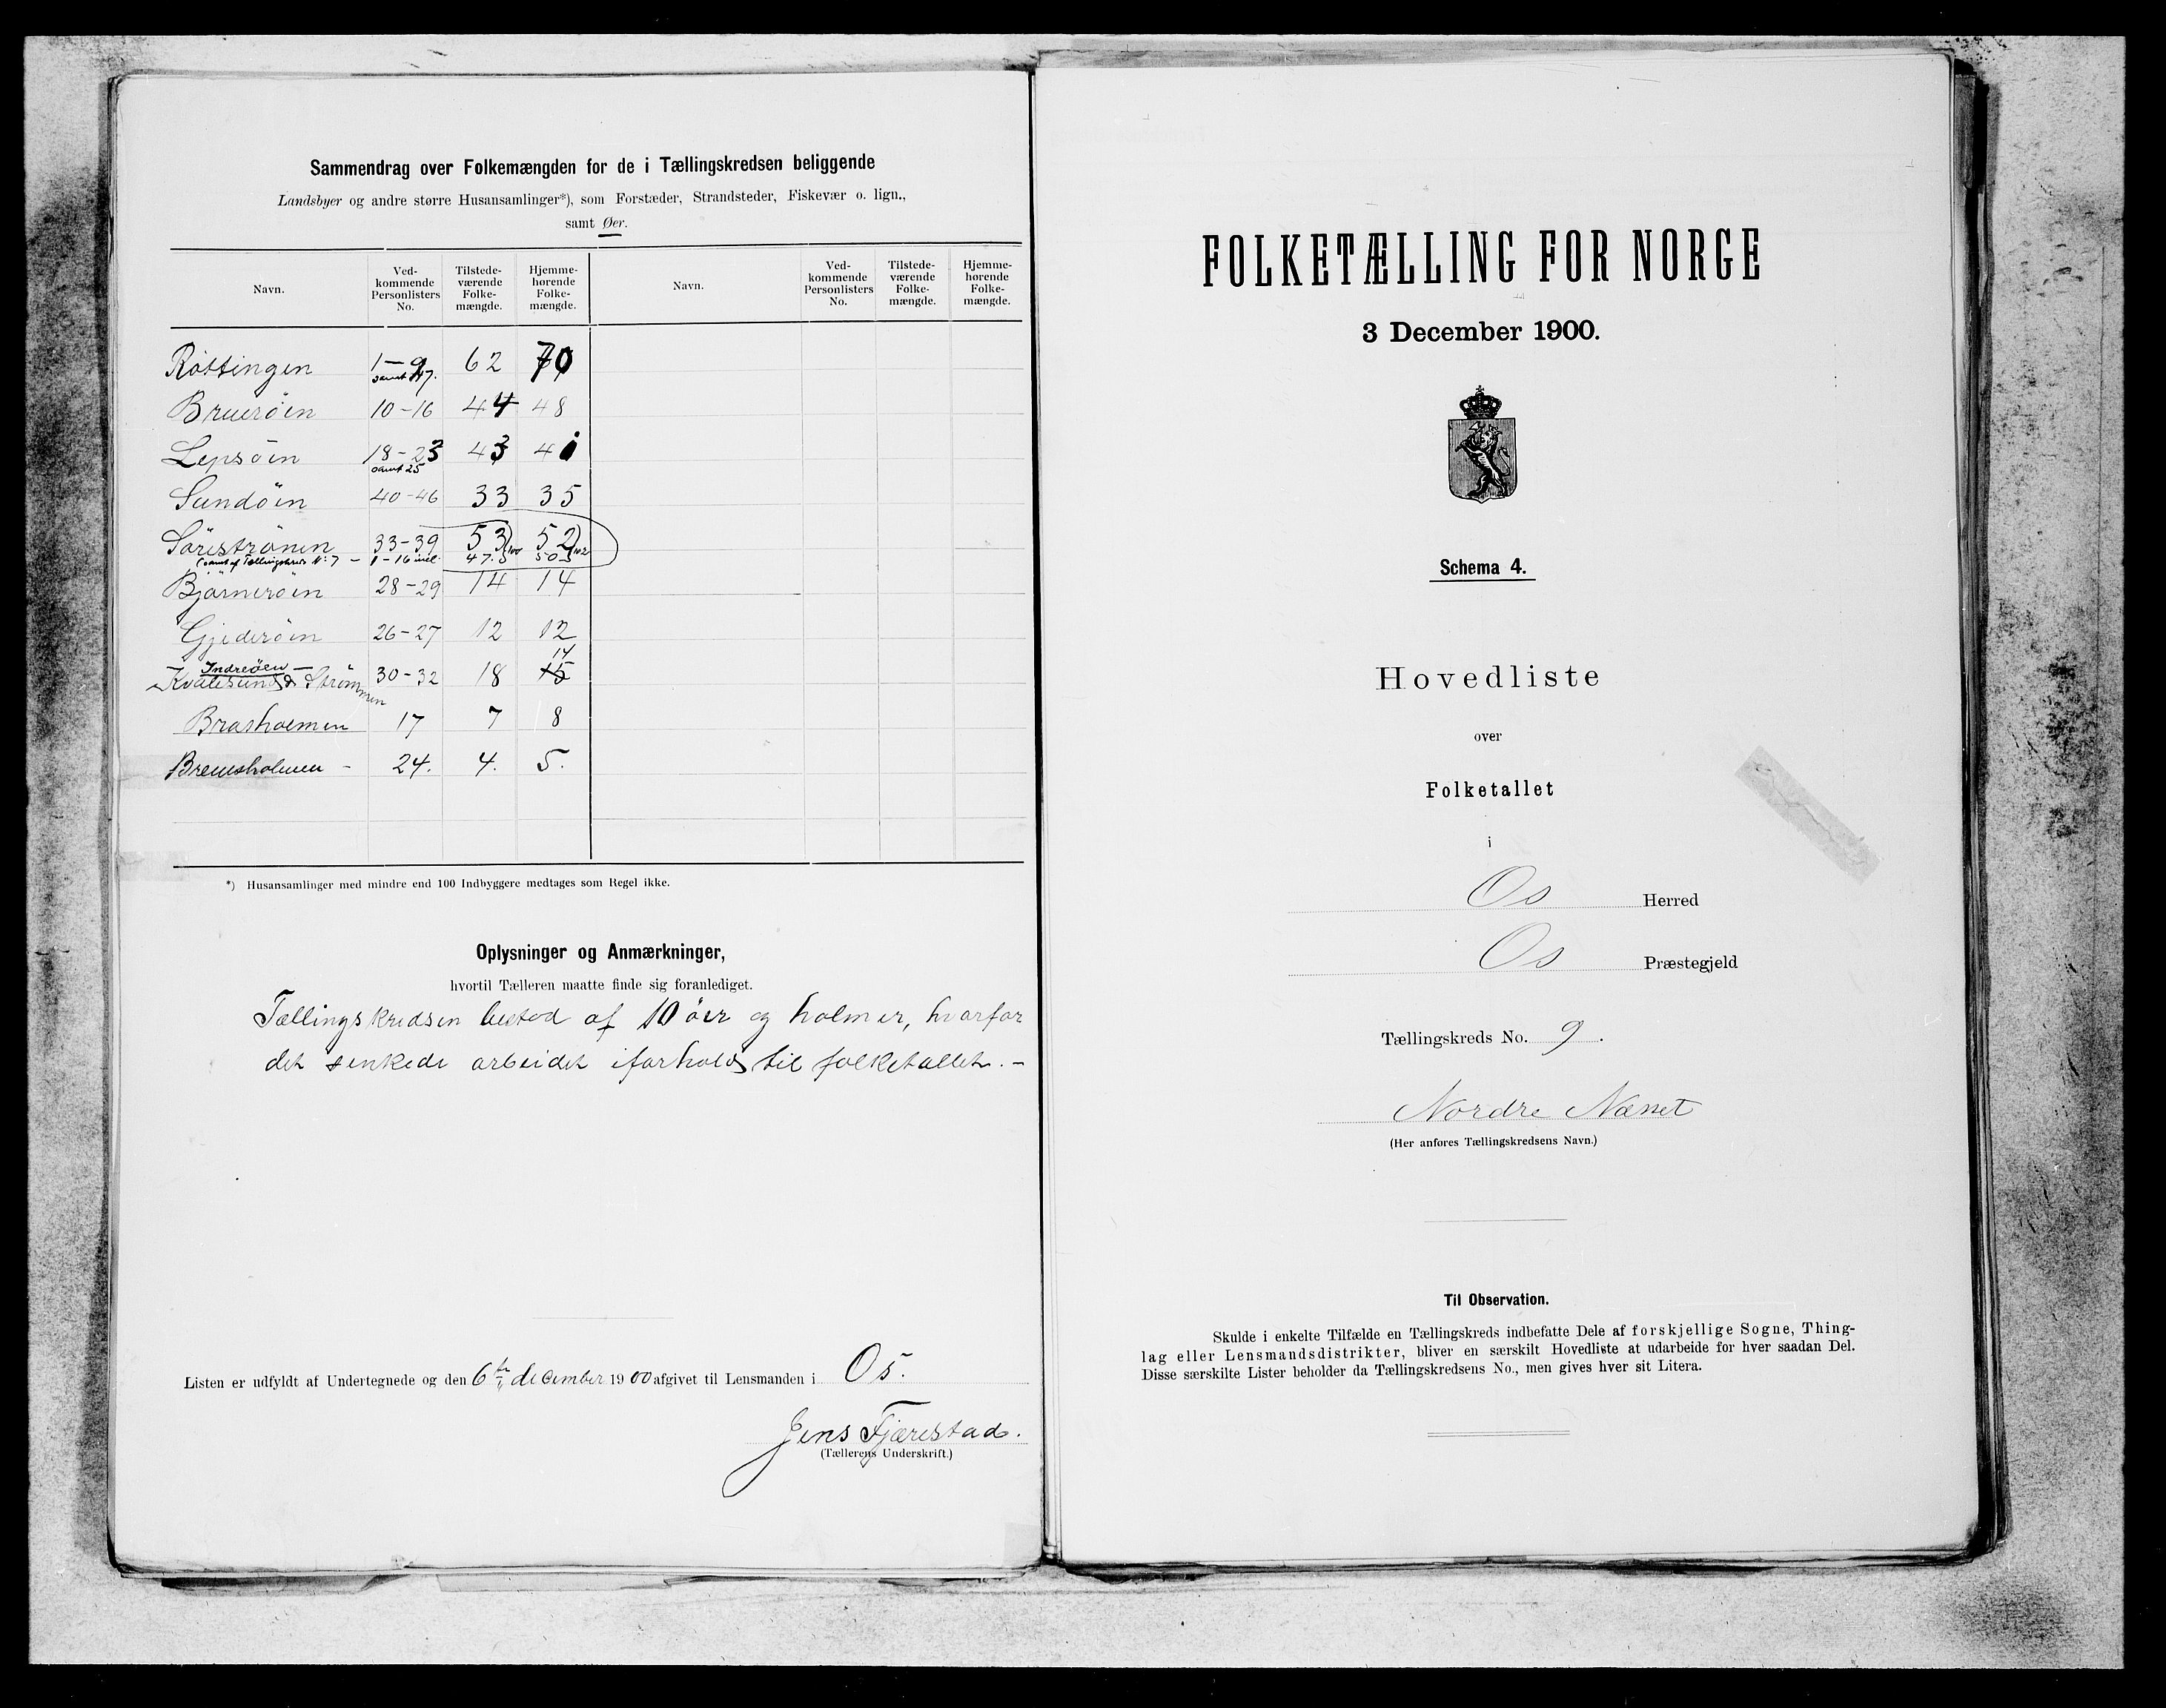 Sammendrag over Folkemængden for de i Tællingskredsen beliggende
Landsbyer og andre større Husansamlinger*), som Forstæder, Strandsteder, Fiskevær o. lign.,
samt Øer.
Navn. Ved-kommende Personlisters No. Tilstede-værende Folke-mængde. Hjemme-hørende Folke-mængde. Navn. Ved-kommende Personlisters No. Tilstede-værende Folke-mængde. Hjemme-hørende Folke-mængde.
Röttingen 1-9 62 70
samt 47.
Brueröen 10-16 44 48
Lepsöen 18-23 43 41
samt 25
Sundöen 40-46 33 35
Sörestrônen 33-39 53 52
(samt af Tællingskreds N: 7 - 1-16 incl. 47.) 100 50.) 102
Bjørneröen 28-29 14 14
Gjederöen 26-27 12 12
Indreöen - 14
Kvalesund & Strömmen 30-32 18 15
Brasholmen 17 7 8
Bremsholmen - 24. 4. 5.
*) Husansamlinger med mindre end 100 Indbyggere medtages som Regel ikke.
Oplysninger og Anmærkninger,
hvortil Tælleren maatte finde sig foranlediget.
Tællingskredsen bestod af 10 öer og holmer, hvorfor
det senkede arbeidet iforhold til folketallet. -
Listen er udfyldt af Undertegnede og den 6te december 1900 afgivet til Lensmanden i Os.
Jens Fjærestad.
(Tællerens Underskrift.)
FOLKETÆLLING FOR NORGE
3 December 1900.
Schema 4.
Hovedliste
over
Folketallet
i
Os Herred
Os Præstegjeld
Tællingskreds No. 9.
Nordre Næset
(Her anføres Tællingskredsens Navn.)
Til Observation.
Skulde i enkelte Tilfælde en Tællingskreds indbefatte Dele af forskjellige Sogne, Thing-
lag eller Lensmandsdistrikter, bliver en særskilt Hovedliste at udarbeide for hver saadan Del.
Disse særskilte Lister beholder da Tællingskredsens No., men gives hver sit Litera.